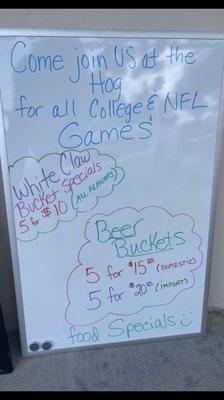 Come join us at the
Hog
for all College & NFL
Games
White Claw
Bucket Specials
5 for $10 (ALL FLAVORS)
Beer
Buckets
5 for $15 (DOMESTIC)
5 for $20 (IMPORT)
food Specials